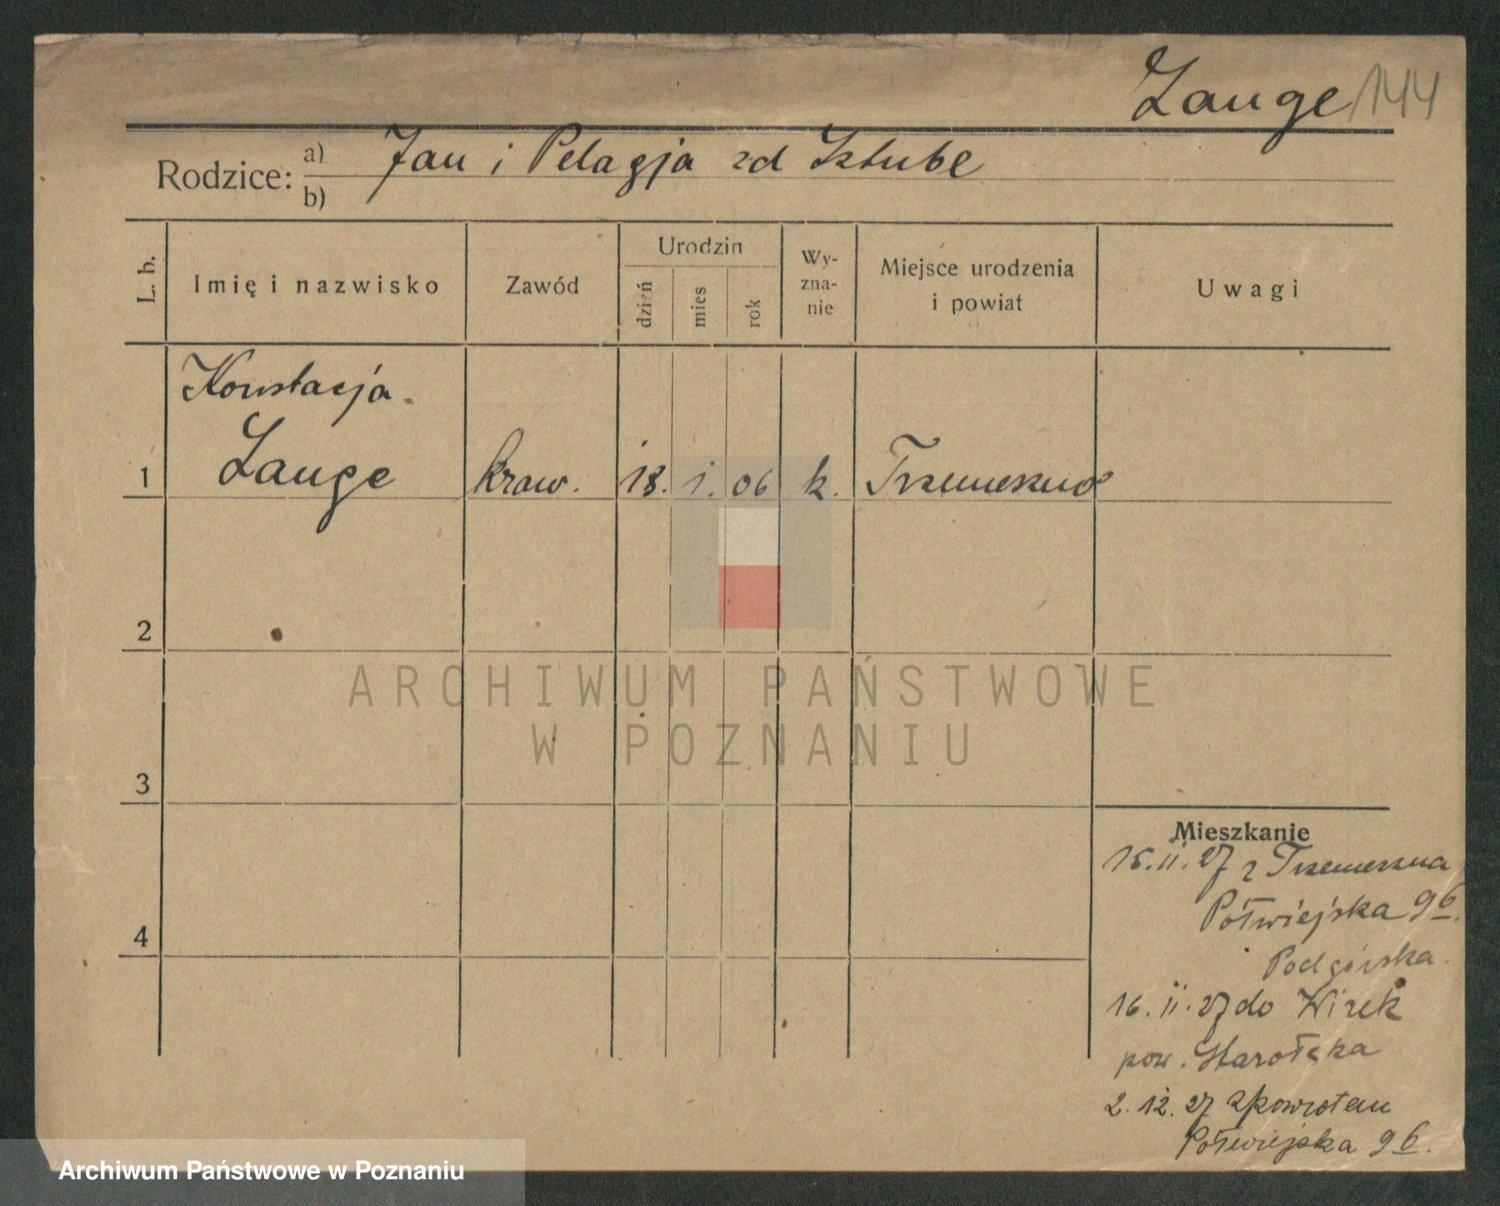 Lange 144
Rodzice: a) Jan i Pelagja zd Sztube
b)
L. b.
Imię i nazwisko
Zawód
Urodzin
dzień
mies
rok
Wy-
zna-
nie
Miejsce urodzenia
i powiat
Uwagi
Konstacja
1 Lange kraw. 18. 1. 06 k. Trzemeszno
2
3
4
Mieszkanie
15.II.27 z Trzemeszna
Półwiejska 96.
Podgórska
16.II.27 do Wirek
pow. Starołęka
2.12.27 zpowrotem
Półwiejska 96.
ARCHIWUM PAŃSTWOWE
W POZNANIU
Archiwum Państwowe w Poznaniu